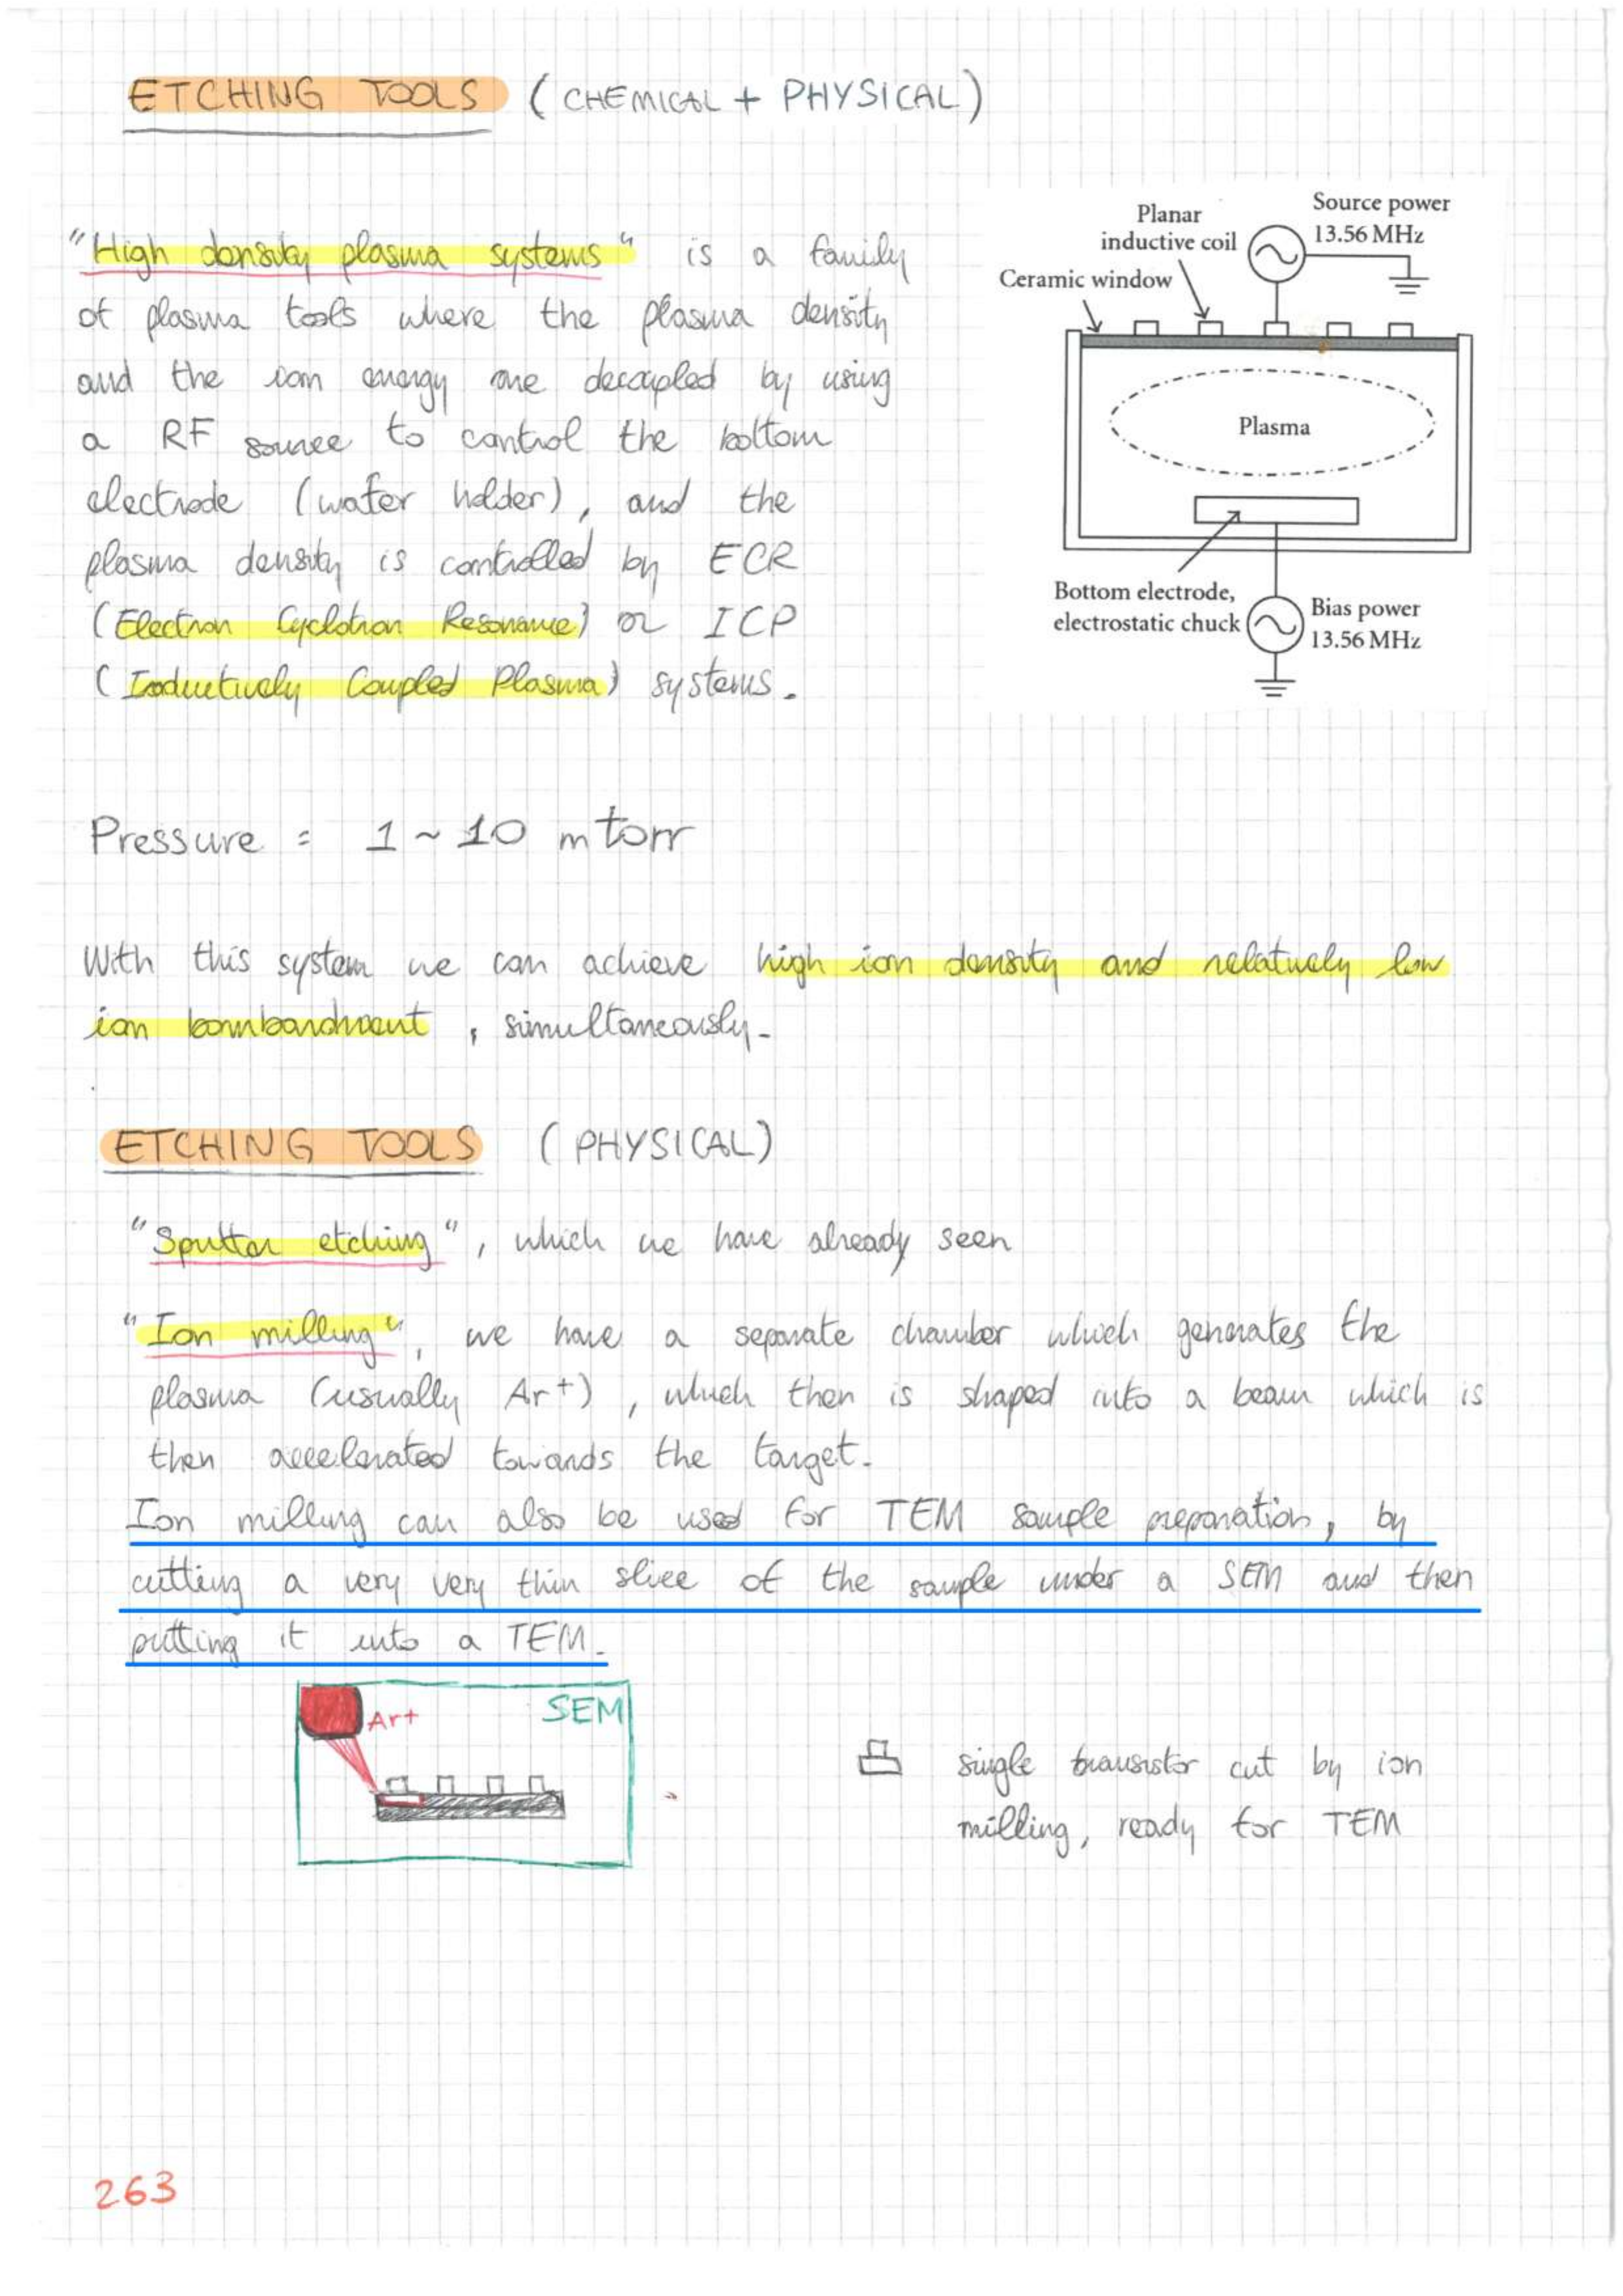 ETCHING TOOLS (CHEMICAL + PHYSICAL)
"High density plasma systems" is a family
of plasma tools where the plasma density
and the ion energy are decoupled by using
a RF source to control the bottom
electrode (wafer holder), and the
plasma density is controlled by ECR
(Electron Cyclotron Resonance) or ICP
(Inductively Coupled Plasma) systems.
Source power
13.56 MHz
Planar
inductive coil
Ceramic window
Plasma
Bottom electrode,
electrostatic chuck
Bias power
13.56 MHz
Pressure = 1 ~ 10 mtorr
With this system we can achieve high ion density and relatively low
ion bombardment, simultaneously.
ETCHING TOOLS (PHYSICAL)
"Sputter etching", which we have already seen
"Ion milling", we have a separate chamber which generates the
plasma (usually Ar+), which then is shaped into a beam which is
then accelerated towards the target.
Ion milling can also be used for TEM sample preparation, by
cutting a very very thin slice of the sample under a SEM and then
putting it into a TEM.
Ar+
SEM
single transistor cut by ion
milling, ready for TEM
263